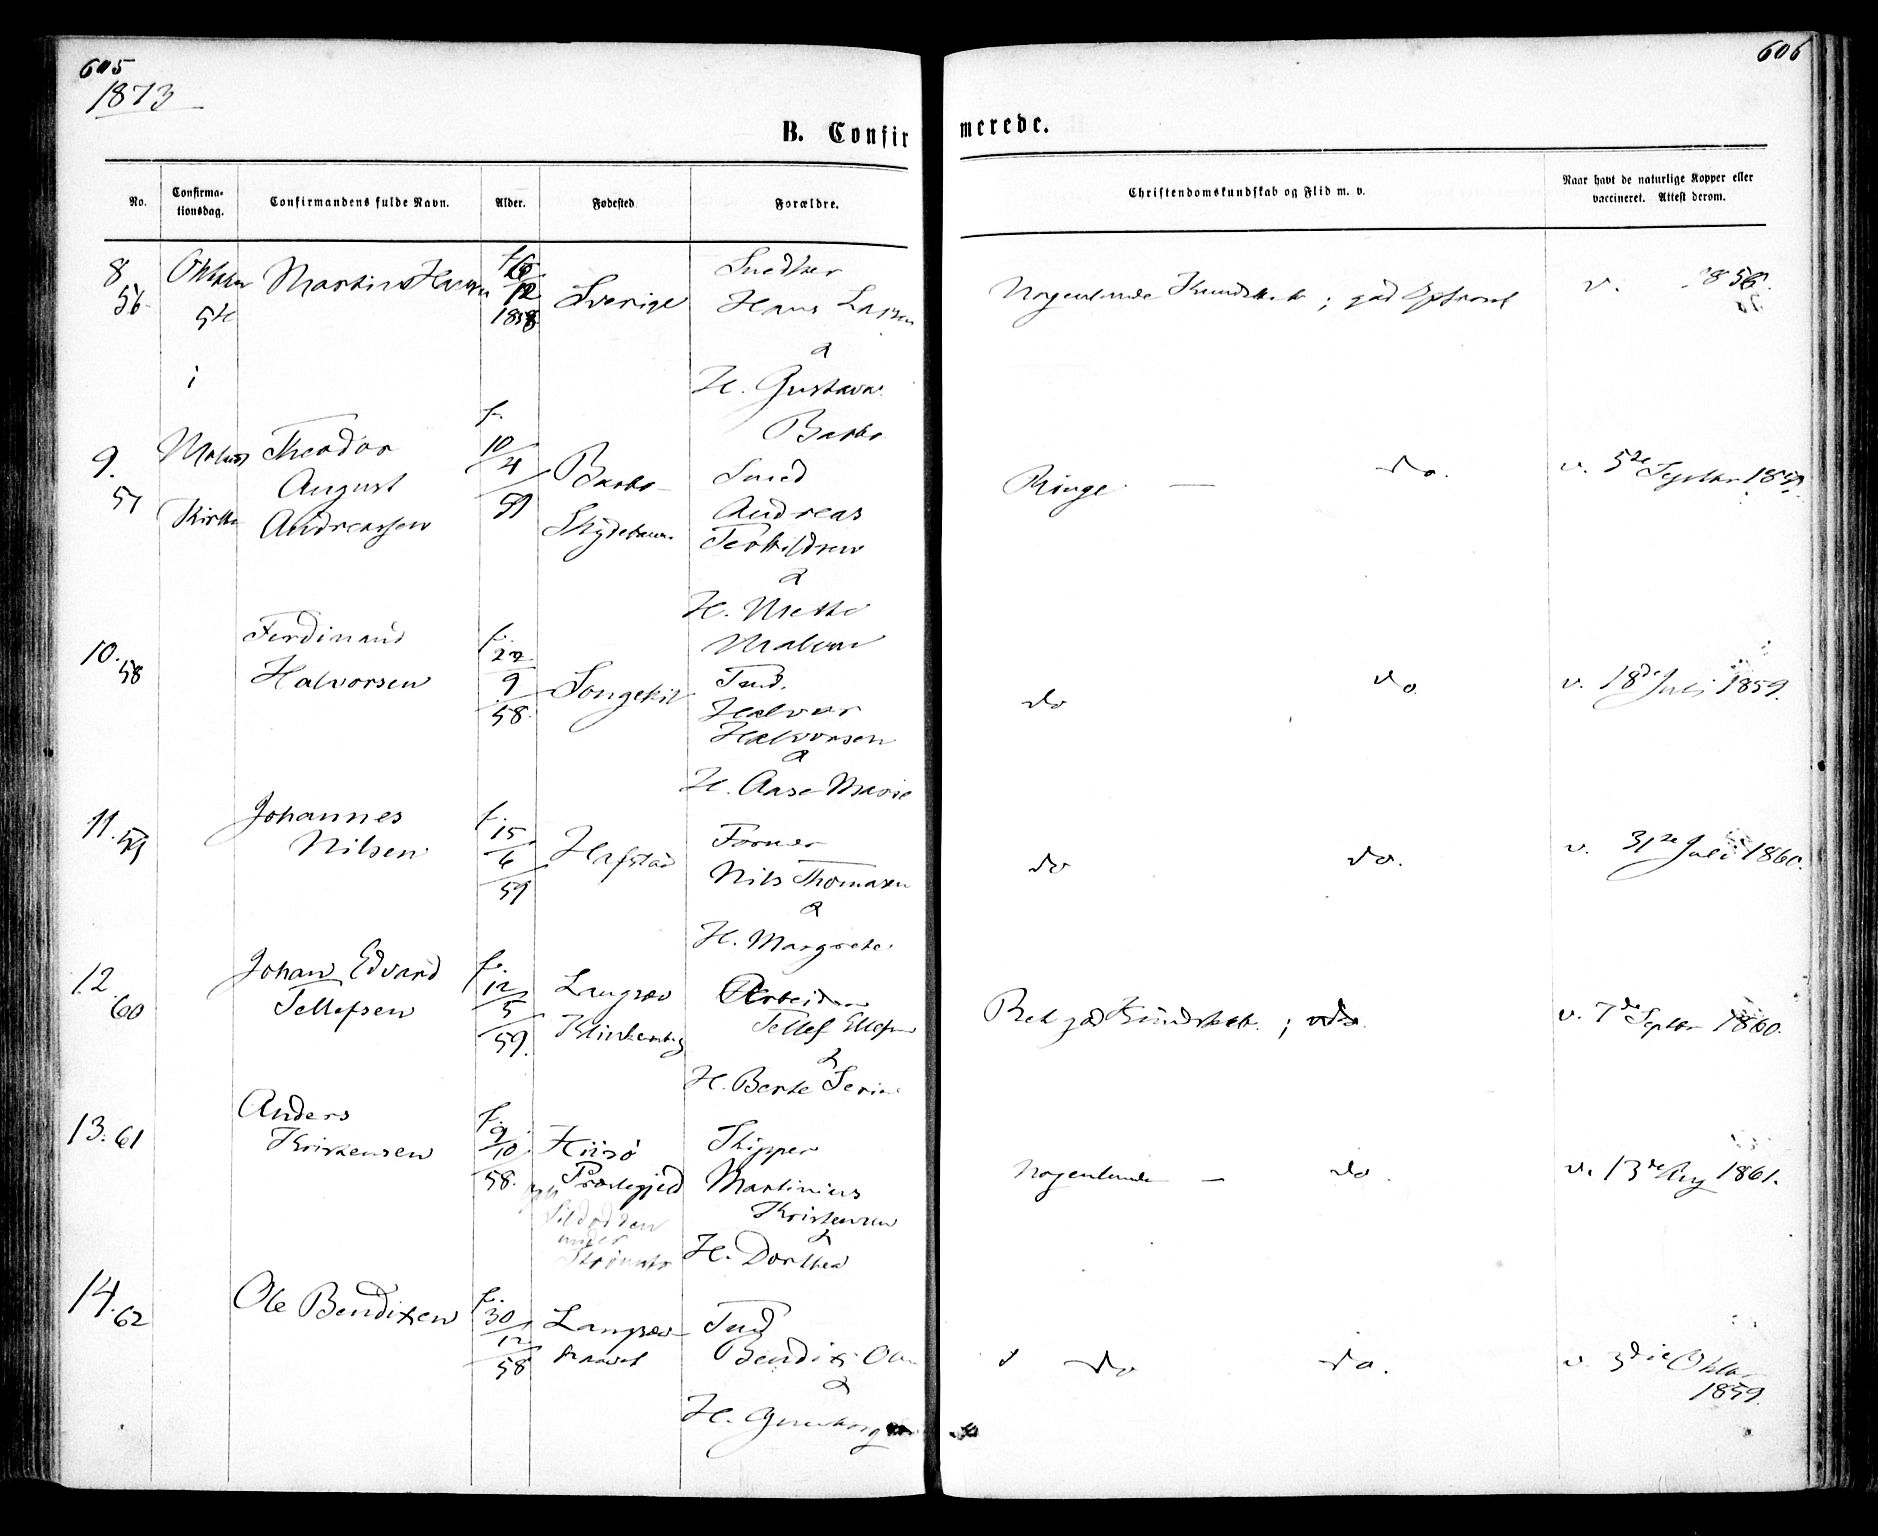 605
1873
606
B. Confirmerede.
No.
Confirma-
tionsdag.
Confirmandens fulde Navn.
Alder.
Fødested.
Forældre.
Christendomskundskab og Flid m. v.
Naar havt de naturlige Kopper eller
vaccineret. Attest derom.
8
56
5te
i
Martin
12
1858
Sverige
Snedker
Hans
&
H. Gustava
Barbo
Nogenlunde Kundskab; god
v.
9.
57
Kirke
Theodor
August
Andreassen
f.
10/4
59
Barbo
Smed
Andreas
Terkildsen
&
H. Mette
Malene
Ringe —
do.
v. 5te Septbr
10.
58
Ferdinand
Halvorsen
f.
22
9
58
Songekil
Tmd.
Halvor
Halvorsen
&
H. Aase Marie
do
do
v. 18de Juli 1859.
11.
59
Johannes
Nilsen
f.
15
6
59
Havstad
Former
Nils Thomasen
&
H. Margrete
do
do.
v. 31te Juli 1860.
12.
60
Johan Edvard
Tellefsen
f.
12
5
59.
Langsæ
Klinkenberg
Arbeider
Tellef Ellefsen
&
H. Berte Serine
Ret god Kundskab; do.
v. 7de Septbr 1860.
13.
61
Anders
Kristensen
f.
9
10
58.
Hiisø
Præstegjeld
Sildodden
under
Skipper
Martinius
Kristensen
&
H. Dorthea
Nogenlunde —
do.
v. 13de Aug 1861.
14.
62
Ole Bendixen
f.
30
12
58
Langsæ
Tmd
Bendix Olsen
&
H. Gunborg
do
do.
v. 3die Oktbr
1859.